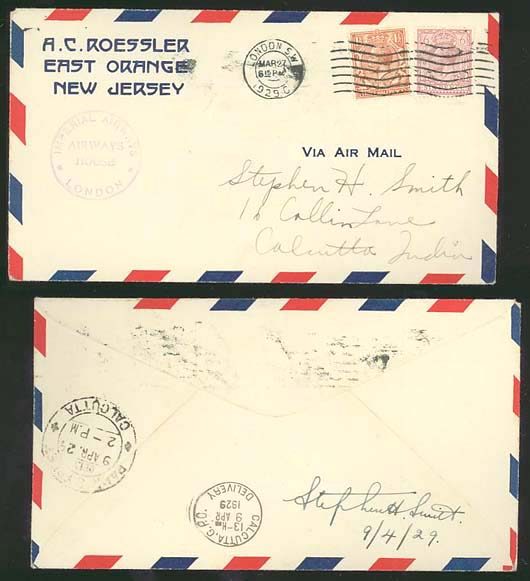 A.C. ROESSLER
EAST ORANGE
NEW JERSEY
LONDON S.W.
MAR 27
6 15 PM
1929
IMPERIAL AIRWAYS
AIRWAYS
HOUSE
LONDON
VIA AIR MAIL
Stephen H. Smith
Collin Lane
Calcutta India
CALCUTTA
2 - P.M
9 APR. 29
CALCUTTA G.P.O.
13-
9 APR
1929
DELIVERY
Stephen H. Smith.
9/4/29.